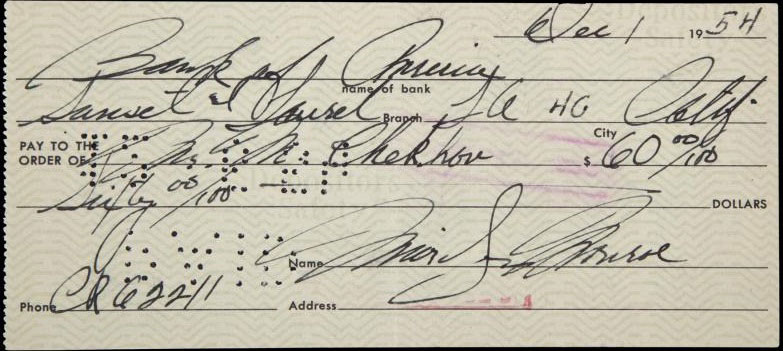 Dec 1 1954
Bank of America
name of bank
Sunset & Laurel Branch L A 46 Calif.
City
PAY TO THE
ORDER OF Mr. M. Chekhov $ 60 00/100
Sixty 00/100 DOLLARS
Name Marilyn Monroe
Phone CR 62211 Address